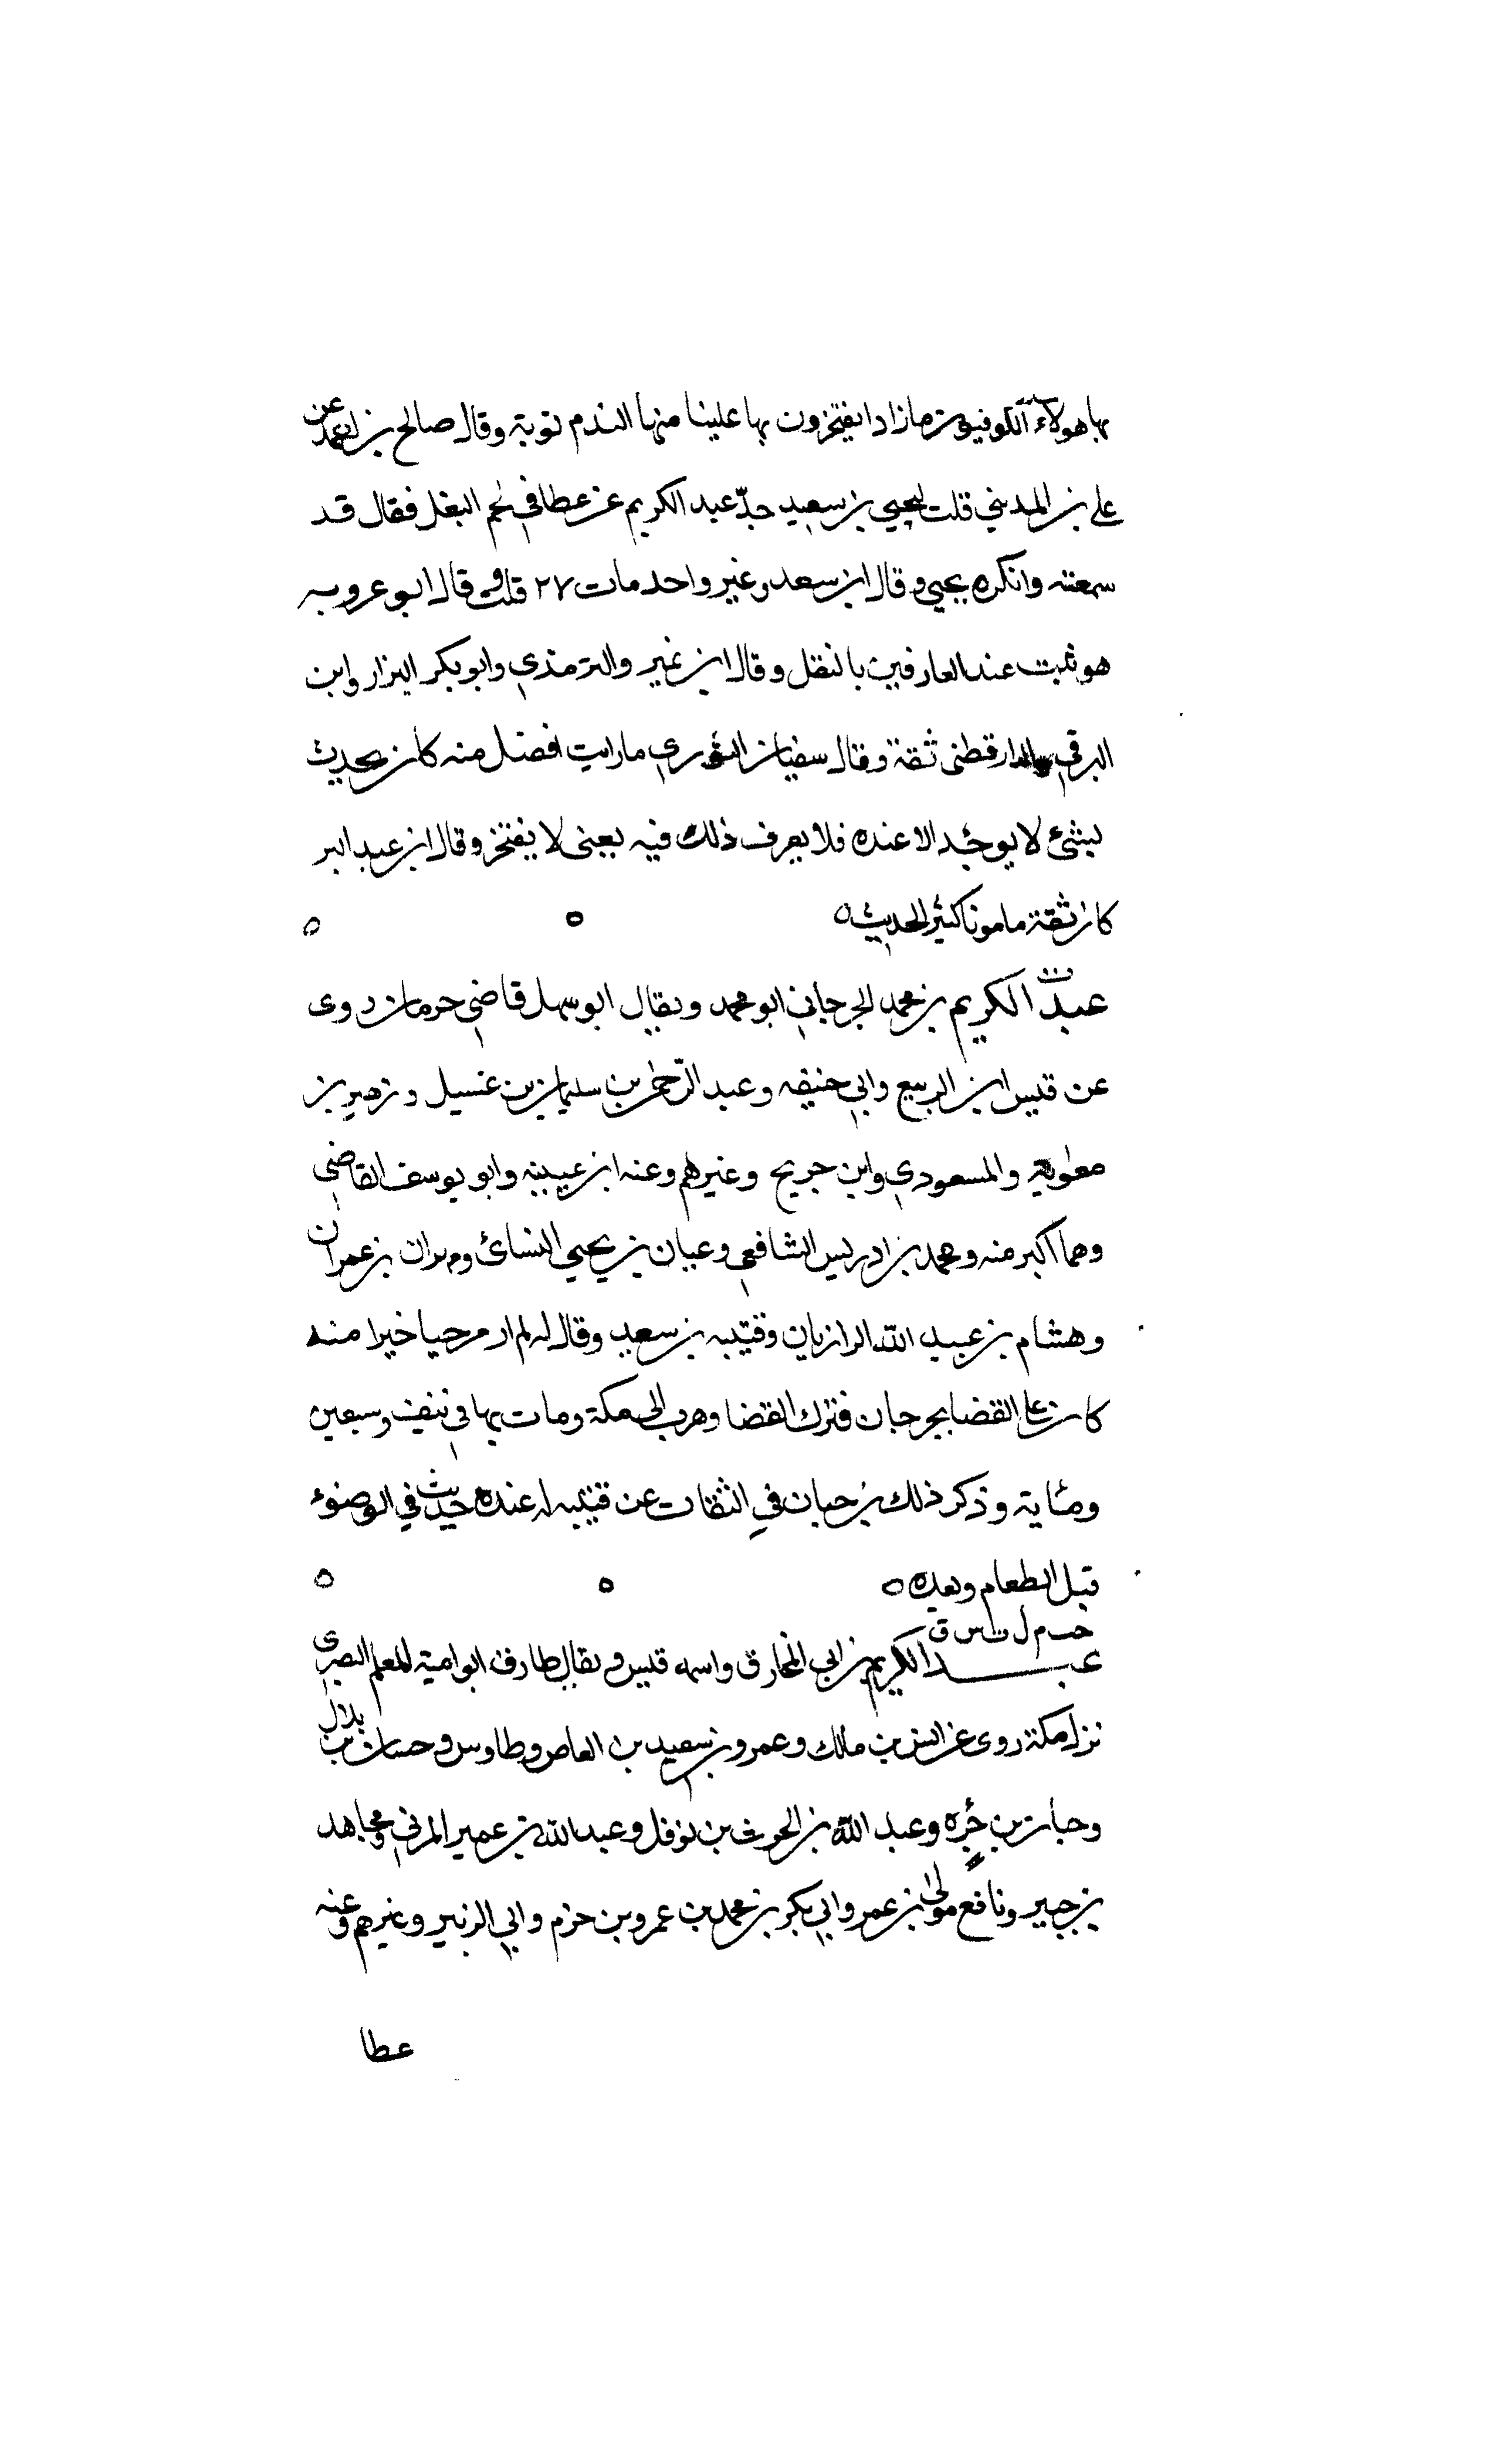 بها هولاء الكوفيون ماز اد ا يفتخرون بها علينا منها الندم توبة وقال صالح بن احمد عن
علي بن المديني قلت ليحيي بن سعيد حدّ عبد الكريم عن عطا في لحم البغل فقال قد
سمعته وانكره يحيي وقال ابن سعد وغير واحد مات ٢٧ قلت وقال ابو عروبه
هو ثبت عند العارفين بالنقل وقال ابن نمير والترمذي وابو بكر البزار وابن
البرقي والدارقطنى ثقة وقال سفيان الثوري ما رايت افضل منه كان يحدث
بشئ لا يوجد الا عنده فلا يعرف ذلك فيه يعنى لا يفتخر وقال ابن عبد البر
كان ثقة مامونا كثير الحديث ٥ ٥ ٥
عبد الكريم بن محمد الجرجاني ابو محمد ويقال ابو سهل قاضي جرجان روى
عن قيس ابن الربيع وابي حنيفه وعبد الرحمن بن سليمان بن غسيل وزهير بن
معاوية والمسعودي وابن جريج وغيرهم وعنه ابن عيينه وابو يوسف القاضي
وهما اكبر منه ومحمد بن ادريس الشافعي وعبان بن يحيي النسائ ومهران بن عمران
وهشام بن عبيد الله الرازيان وقتيبه بن سعيد وقال له لم ار مرجيا خيرا منه
كان على القضا بجرجان فترك القضا وهرب الى مكة ومات بها في نيف وسبعين
ومئاية وذكر ذلك بن حبان في الثقات عن قتيبه له عنده حديث في الوضوء
قبل الطعام وبعده ٥ ٥ ٥
خت م ل ت س ق
عبد الكريم بن ابي المخارق واسمه قيس ويقال طارق ابو امية المعلم البصرى
نزل مكة روى عن انس بن مالك وعمرو بن سعيد بن العاص وطاوس وحسان بن بلال
وحبان بن جزء وعبد الله بن الحرث بن نوفل وعبد الله بن عمير المزني ومجاهد
بن جبير ونافع مولى بن عمر وابي بكر بن محمد بن عمرو بن حزم وابي الزبير وغيرهم وعنه
عطا